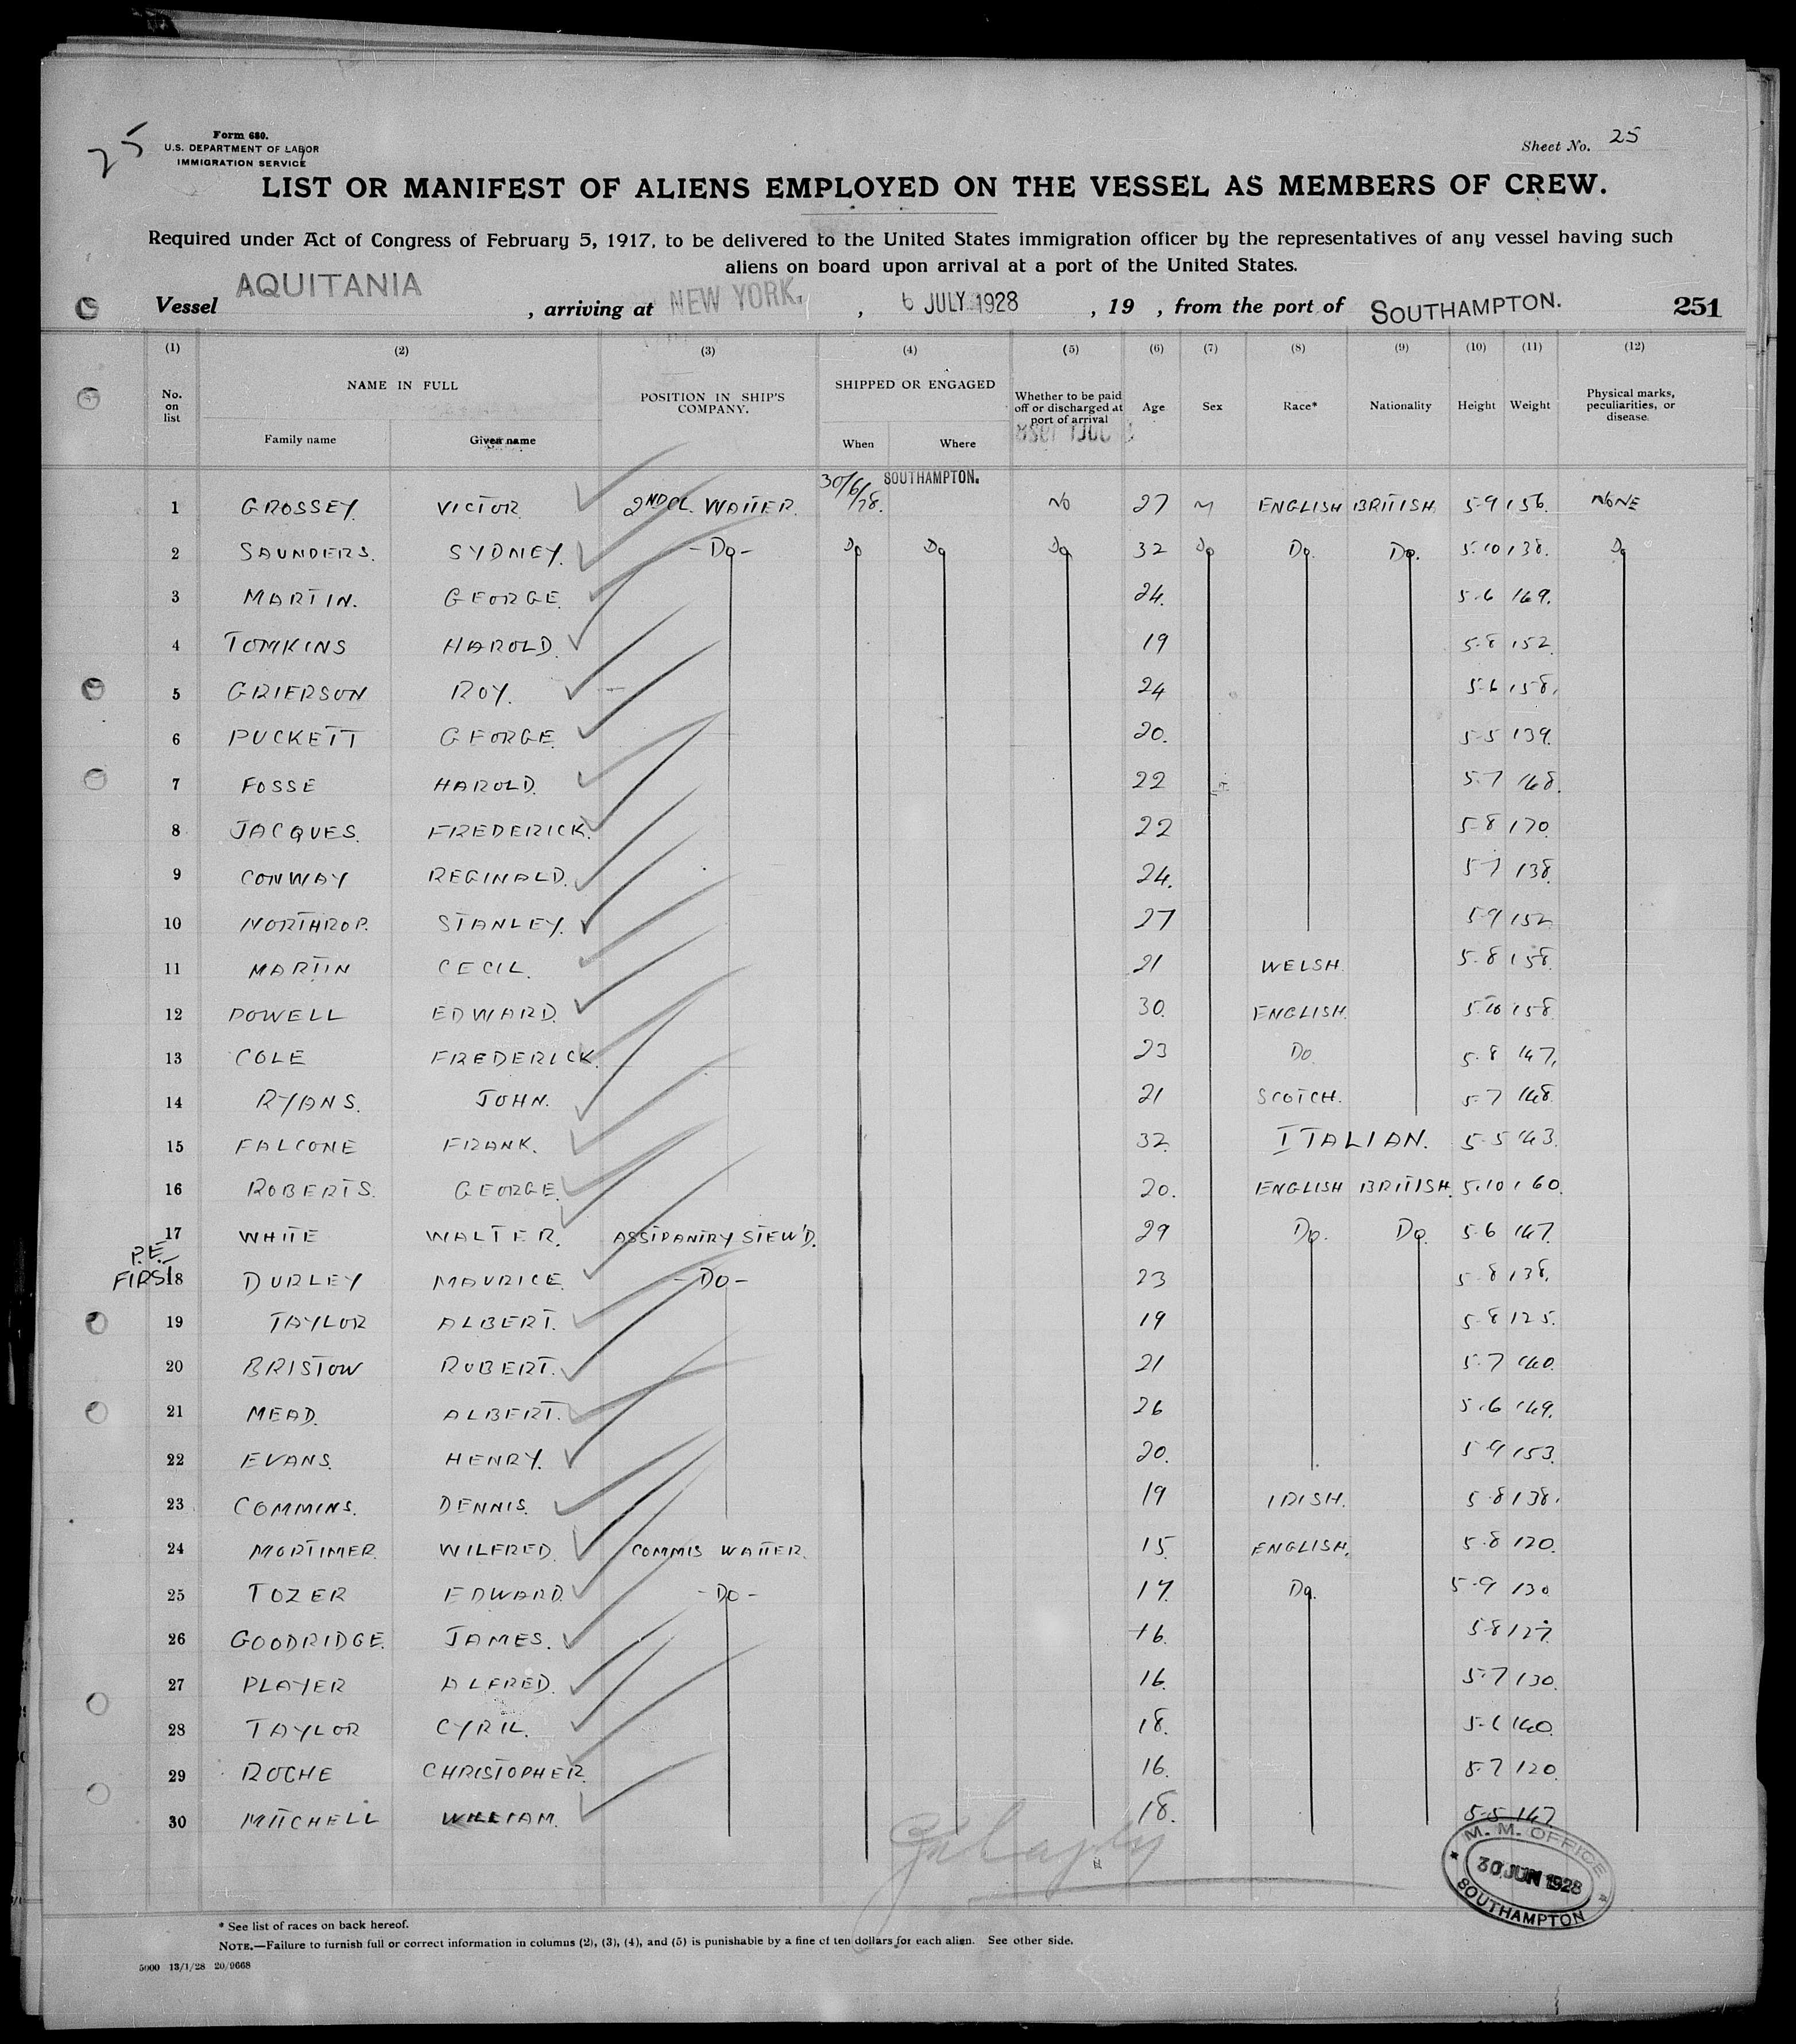 25
Form 680.
U.S. DEPARTMENT OF LABOR
IMMIGRATION SERVICE
Sheet No. 25
LIST OR MANIFEST OF ALIENS EMPLOYED ON THE VESSEL AS MEMBERS OF CREW.
Required under Act of Congress of February 5, 1917, to be delivered to the United States immigration officer by the representatives of any vessel having such
aliens on board upon arrival at a port of the United States.
Vessel AQUITANIA , arriving at NEW YORK. , 6 JULY 1928 , 19 , from the port of SOUTHAMPTON. 251
(1) (2) (3) (4) (5) (6) (7) (8) (9) (10) (11) (12)
No. on list NAME IN FULL POSITION IN SHIP'S COMPANY. SHIPPED OR ENGAGED Whether to be paid off or discharged at port of arrival Age Sex Race* Nationality Height Weight Physical marks, peculiarities, or disease.
Family name Given name When Where
1 GROSSEY. VICTOR 2ND CL. WAITER. 30/6/28. SOUTHAMPTON. NO 27 M ENGLISH BRITISH. 5-9 156. NONE
2 SAUNDERS. SYDNEY. -Do- Do Do Do 32 Do Do. Do. 5.10 138. Do
3 MARTIN. GEORGE. 24. 5.6 149.
4 TOMKINS HAROLD. 19 5-8 152.
5 GRIERSON ROY. 24 5-6 158.
6 PUCKETT GEORGE. 20. 5-5 139.
7 FOSSE HAROLD. 22 5.7 148.
8 JACQUES. FREDERICK. 22 5-8 170.
9 CONWAY REGINALD. 24. 5-7 138.
10 NORTHROP. STANLEY. 27 5-9 152.
11 MARTIN CECIL. 21 WELSH. 5.8 158.
12 POWELL EDWARD. 30. ENGLISH. 5.10 158
13 COLE FREDERICK. 23 Do. 5.8 147.
14 RYANS. JOHN. 21 SCOTCH. 5-7 148
15 FALCONE FRANK. 32. ITALIAN. 5-5 143.
16 ROBERTS. GEORGE. 20. ENGLISH BRITISH. 5.10 160.
17 WHITE WALTER. ASST PANTRY STEW'D. 29 Do. Do. 5.6 147.
P.E. FIRST
18 DURLEY MAURICE -Do- 23 5-8 138.
19 TAYLOR ALBERT. 19 5-8 125.
20 BRISTOW ROBERT. 21 5.7 140.
21 MEAD. ALBERT. 26 5.6 149.
22 EVANS. HENRY. 20. 5-9 153.
23 COMMINS. DENNIS. 19 IRISH. 5-8 138.
24 MORTIMER. WILFRED. COMMIS WAITER. 15. ENGLISH. 5.8 120.
25 TOZER EDWARD. -Do- 17. Do. 5-9 130
26 GOODRIDGE. JAMES. 16. 5-8 127.
27 PLAYER ALFRED. 16. 5-7 130.
28 TAYLOR CYRIL. 18. 5-6 140.
29 ROCHE CHRISTOPHER. 16. 5-7 120.
30 MITCHELL WILLIAM. 18. 5-5 147.
M. M. OFFICE
30 JUN 1928
SOUTHAMPTON
* See list of races on back hereof.
NOTE.—Failure to furnish full or correct information in columns (2), (3), (4), and (5) is punishable by a fine of ten dollars for each alien. See other side.
5000 13/1/28 20/9668